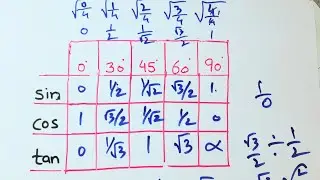 √0/4 √1/4 √2/4 √3/4 √4/4
0 1/2 1/√2 √3/2 1
0° 30° 45° 60° 90°
sin 0 1/2 1/√2 √3/2 1.
cos 1 √3/2 1/√2 1/2 0
tan 0 1/√3 1 √3 α
1/0
√3/2 ÷ 1/2